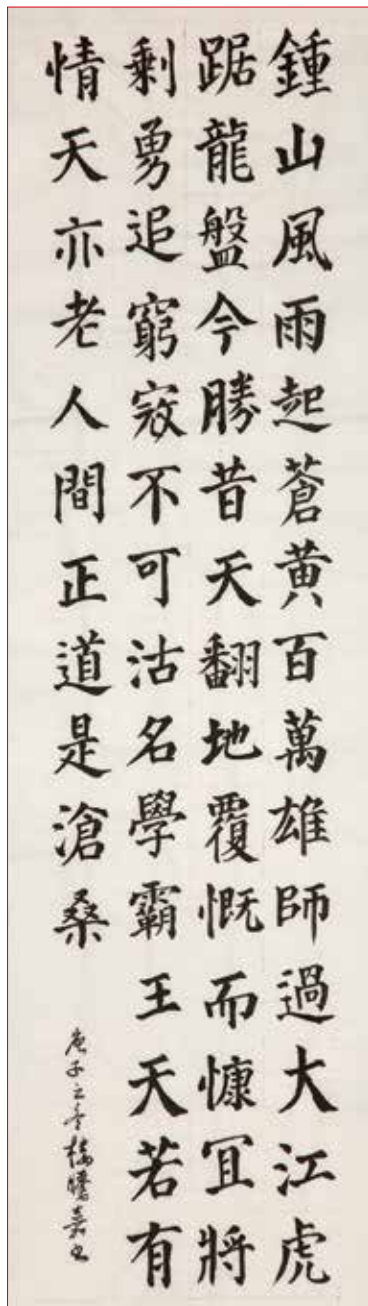 鍾山風雨起蒼黄百萬雄師過大江虎
踞龍盤今勝昔天翻地覆慨而慷冝將
剩勇追窮寇不可沽名學霸王天若有
情天亦老人間正道是滄桑
庚子之冬